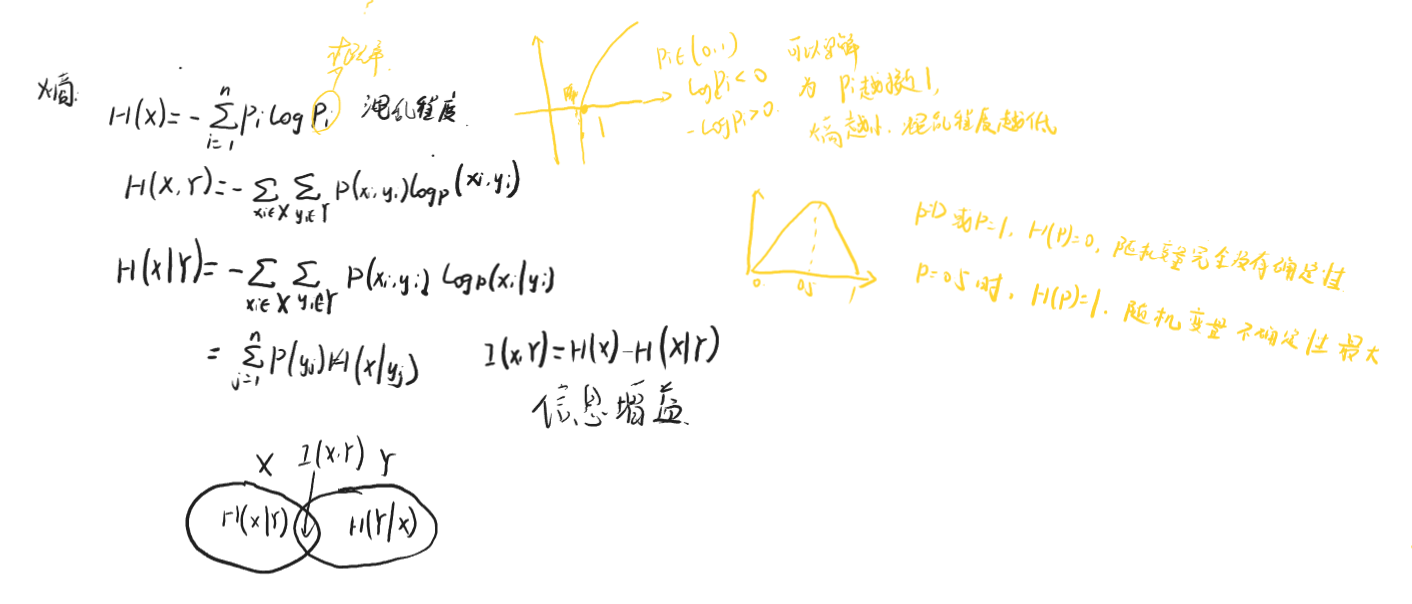 求概率
熵:
H(x)=-∑_{i=1}^{n} Pi log Pi 混乱程度.
H(X,Y)=-∑_{xi∈X}∑_{yi∈Y} P(xi,yi)logp(xi,yi)
H(X|Y)=-∑_{xi∈X}∑_{yi∈Y} P(xi,yi) logp(xi|yi)
=∑_{j=1}^{n}P(yj)H(x|yj)
I(x,Y)=H(x)-H(x|Y)
信息增益.
X I(x,Y) Y
H(x|Y) H(Y|x)
1
Pi∈(0,1) 可以理解
logPi<0 为 Pi越接近1,
-logPi>0. 熵越小.混乱程度越低
0 0.5 1
P=0或P=1, H(P)=0, 随机变量完全没有确定性
P=0.5时, H(P)=1. 随机变量不确定性最大